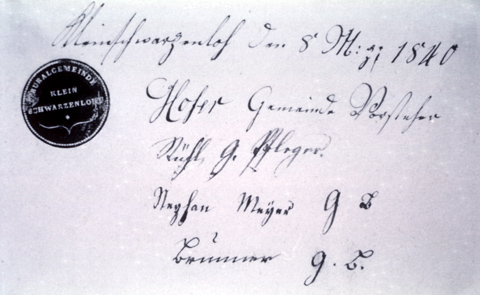 Kleinschwarzenloh den 8 M: 1840
RURALGEMEINDE
KLEIN
SCHWARZENLOHE
Hofer Gemeinde Vorsteher
Kühl G. Pfleger.
Stephan Meyer G B
Brunner G. B.